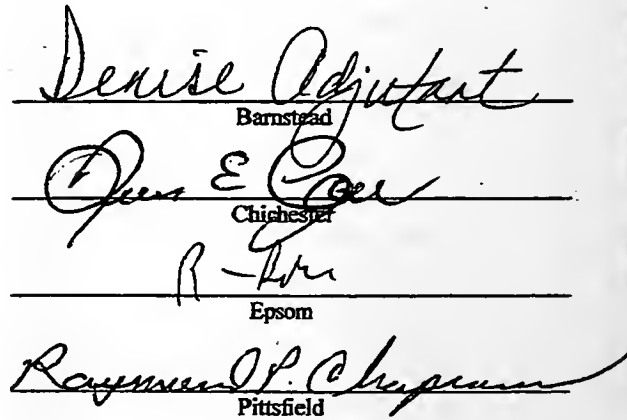 Denise Adjutant
Barnstead
E
Chichester
R
Epsom
Raymond P. Chapman
Pittsfield